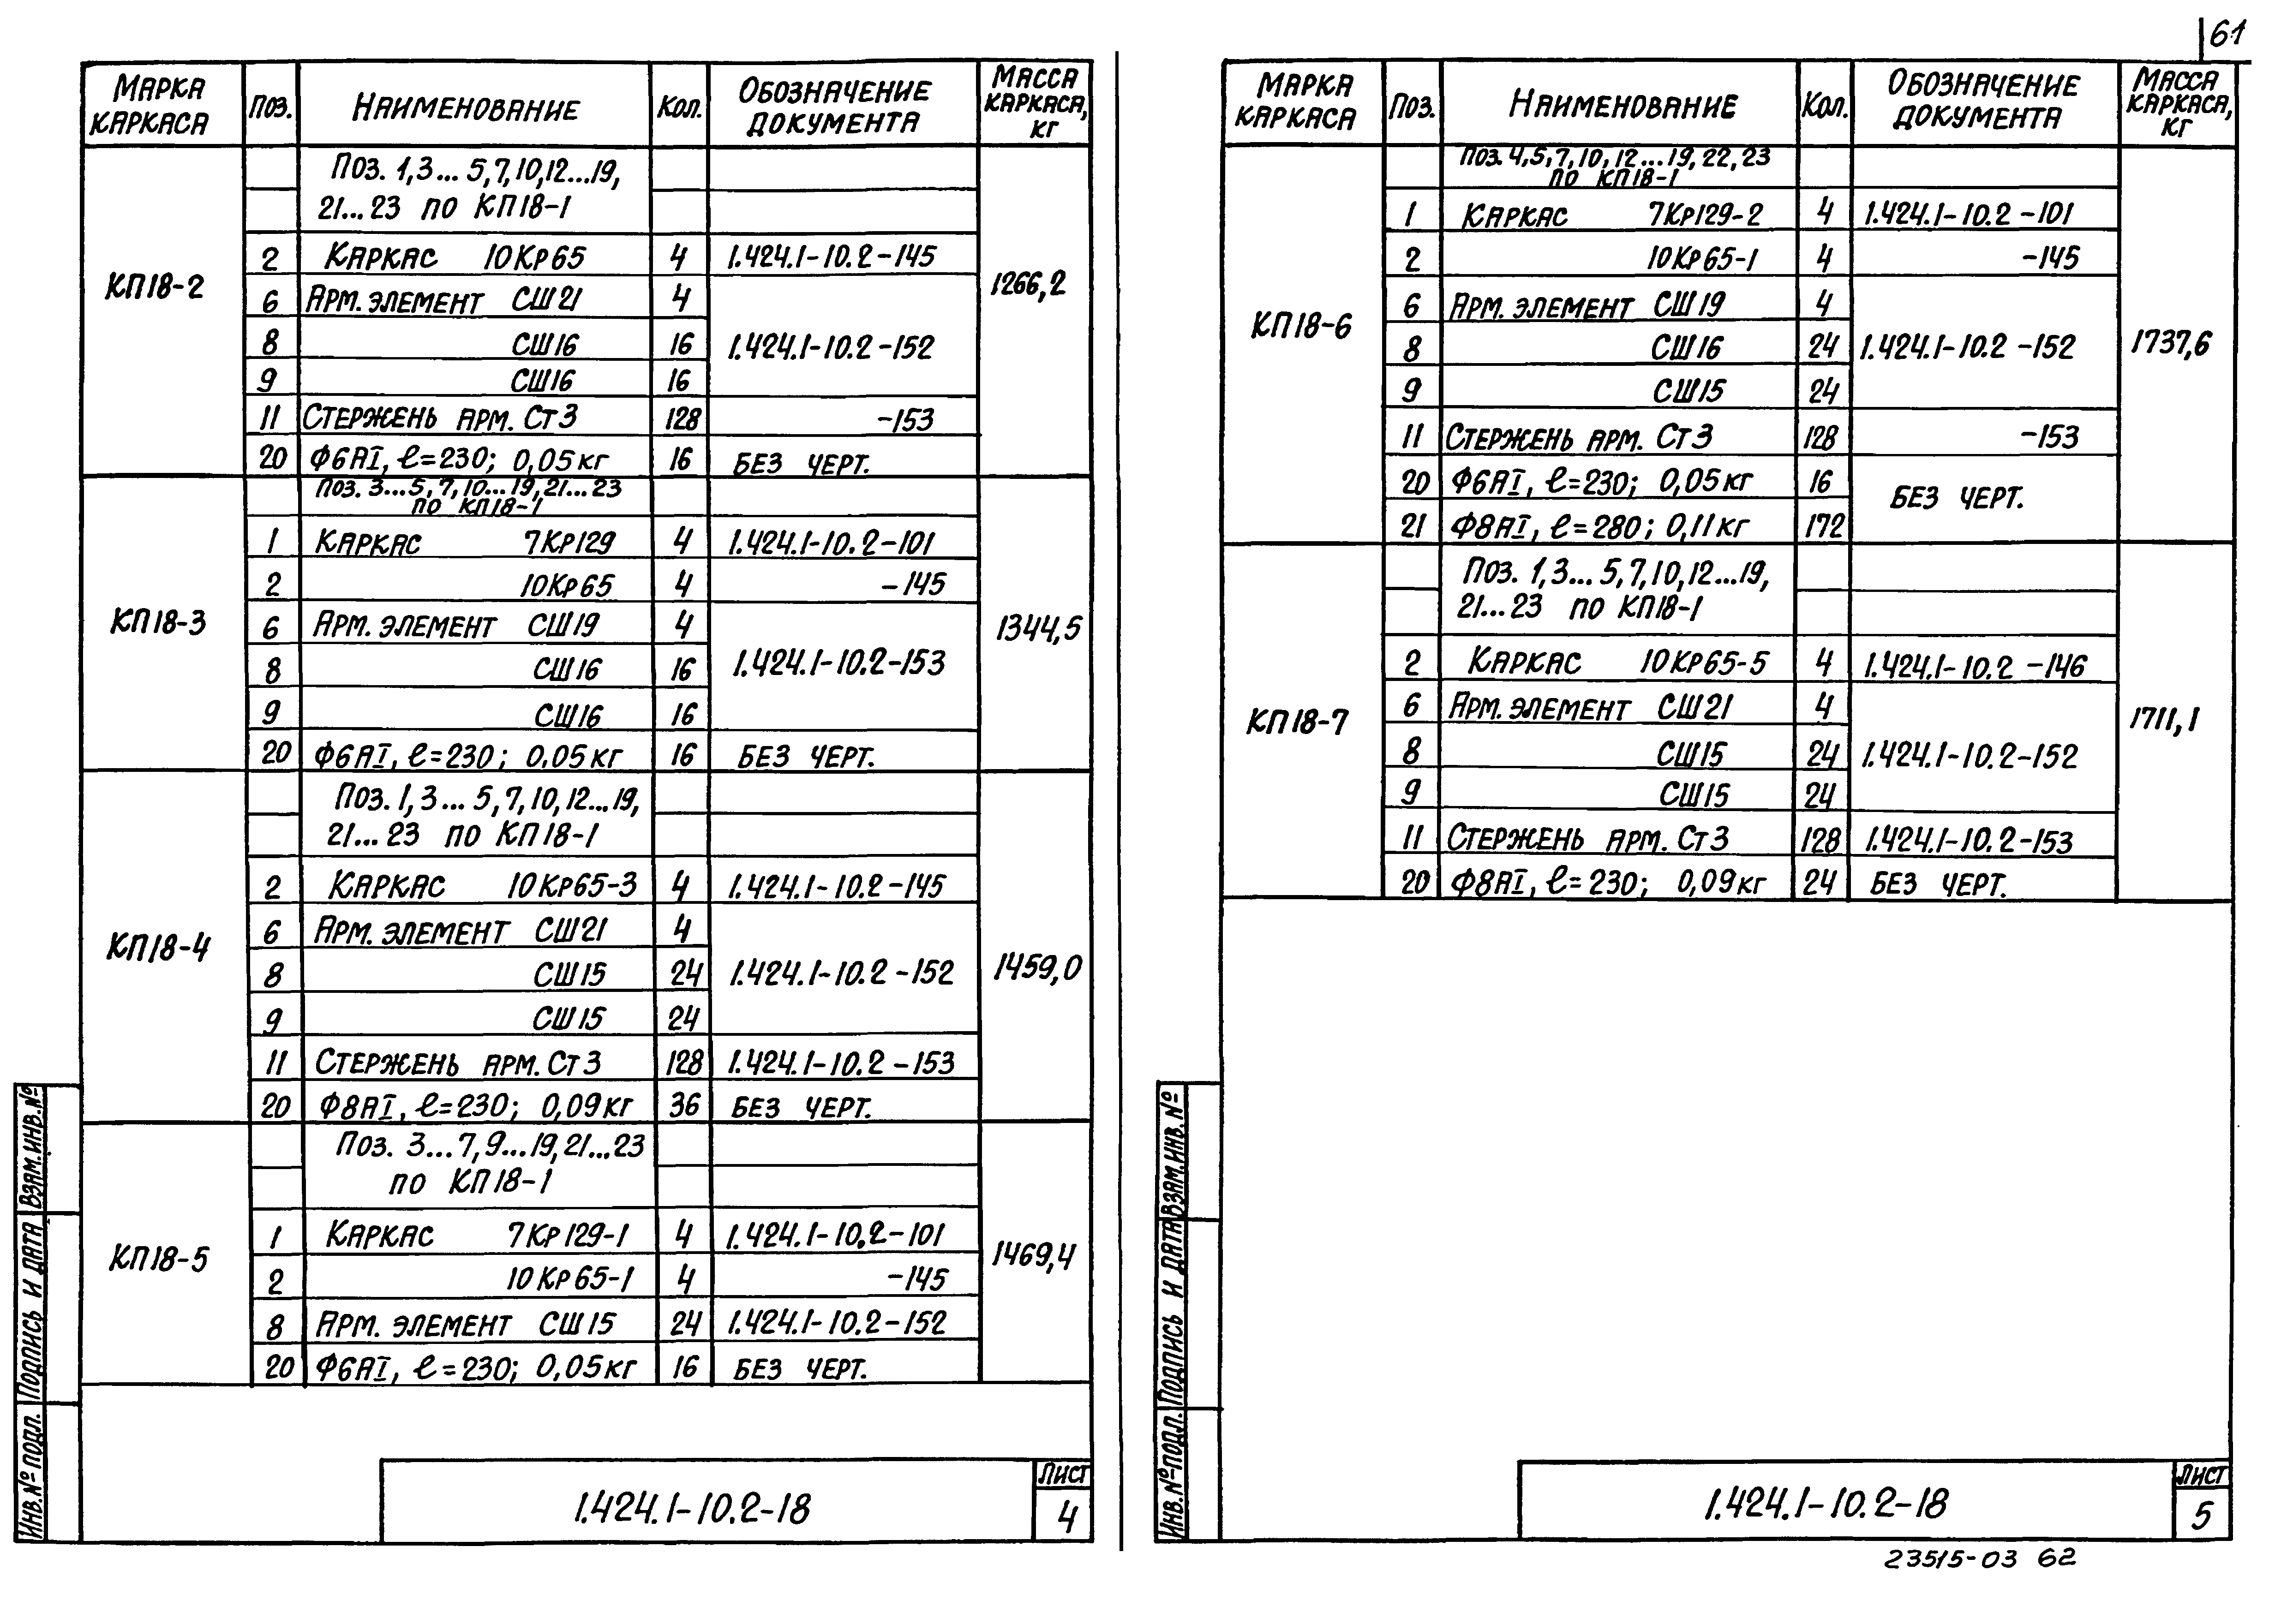 61
Марка каркаса | Поз. | Наименование | Кол. | Обозначение документа | Масса каркаса, кг
КП18-2 | 1266,2
Поз. 1,3... 5,7,10,12...19,
21...23 по КП18-1
2 | Каркас 10Кр65 | 4 | 1.424.1-10.2-145
6 | Арм. элемент СШ21 | 4
8 | СШ16 | 16 | 1.424.1-10.2-152
9 | СШ16 | 16
11 | Стержень арм. Ст3 | 128 | -153
20 | Ф6АI, ℓ=230; 0,05кг | 16 | без черт.
КП18-3 | 1344,5
Поз. 3...5,7,10...19,21...23
по КП18-1
1 | Каркас 7Кр129 | 4 | 1.424.1-10.2-101
2 | 10Кр65 | 4 | -145
6 | Арм. элемент СШ19 | 4
8 | СШ16 | 16 | 1.424.1-10.2-153
9 | СШ16 | 16
20 | Ф6АI, ℓ=230; 0,05кг | 16 | без черт.
КП18-4 | 1459,0
Поз. 1,3... 5,7,10,12...19,
21...23 по КП18-1
2 | Каркас 10Кр65-3 | 4 | 1.424.1-10.2-145
6 | Арм. элемент СШ21 | 4
8 | СШ15 | 24 | 1.424.1-10.2-152
9 | СШ15 | 24
11 | Стержень арм. Ст3 | 128 | 1.424.1-10.2-153
20 | Ф8АI, ℓ=230; 0,09кг | 36 | без черт.
КП18-5 | 1469,4
Поз. 3...7,9...19,21...23
по КП18-1
1 | Каркас 7Кр129-1 | 4 | 1.424.1-10.2-101
2 | 10Кр65-1 | 4 | -145
8 | Арм. элемент СШ15 | 24 | 1.424.1-10.2-152
20 | Ф6АI, ℓ=230; 0,05кг | 16 | без черт.
Инв.№ подл. | Подпись и дата | Взам.инв.№
1.424.1-10.2-18
Лист
4
Марка каркаса | Поз. | Наименование | Кол. | Обозначение документа | Масса каркаса, кг
КП18-6 | 1737,6
Поз. 4,5,7,10,12...19,22,23
по КП18-1
1 | Каркас 7Кр129-2 | 4 | 1.424.1-10.2-101
2 | 10Кр65-1 | 4 | -145
6 | Арм. элемент СШ19 | 4
8 | СШ16 | 24 | 1.424.1-10.2-152
9 | СШ15 | 24
11 | Стержень арм. Ст3 | 128 | -153
20 | Ф6АI, ℓ=230; 0,05кг | 16 | без черт.
21 | Ф8АI, ℓ=280; 0,11кг | 172
КП18-7 | 1711,1
Поз. 1,3... 5,7,10,12...19,
21...23 по КП18-1
2 | Каркас 10Кр65-5 | 4 | 1.424.1-10.2-146
6 | Арм. элемент СШ21 | 4
8 | СШ15 | 24 | 1.424.1-10.2-152
9 | СШ15 | 24
11 | Стержень арм. Ст3 | 128 | 1.424.1-10.2-153
20 | Ф8АI, ℓ=230; 0,09кг | 24 | без черт.
Инв.№ подл. | Подпись и дата | Взам.инв.№
1.424.1-10.2-18
Лист
5
23515-03 62